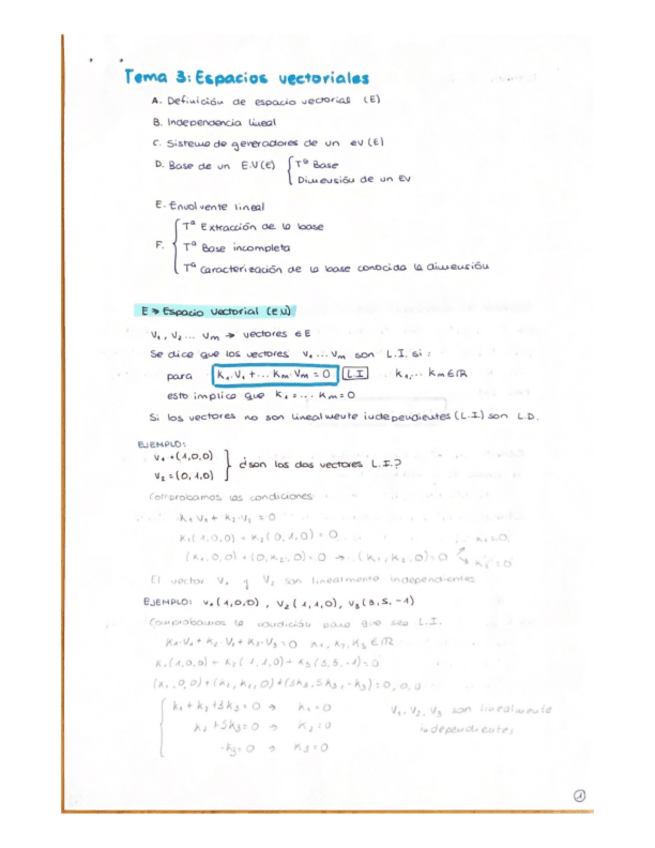 Tema 3: Espacios vectoriales
A. Definición de espacio vectorial (E)
B. Independencia lineal
C. Sistema de generadores de un ev (E)
D. Base de un E.V (E) { Tª Base
Dimensión de un EV
E. Envolvente lineal
F. { Tª Extracción de la base
Tª Base incompleta
Tª Caracterización de la base conocida la dimensión
E → Espacio vectorial (e.v)
V₁, V₂ ... Vm → vectores ∈ E
Se dice que los vectores V₁ ... Vm son L.I. si:
para K₁·V₁ + ... Km·Vm = 0 L.I K₁, ... Km ∈ ℝ
esto implica que K₁ = ... Km = 0
Si los vectores no son linealmente independientes (L.I) son L.D.
EJEMPLO:
V₁ = (1,0,0)
V₂ = (0,1,0) } ¿son los dos vectores L.I.?
Comprobamos las condiciones
K₁V₁ + K₂·V₂ = 0
K₁(1,0,0) + K₂(0,1,0) = 0
(K₁,0,0) + (0,K₂,0) = 0 → (K₁,K₂,0) = 0 K₁ = 0 K₂ = 0
El vector V₁ y V₂ son linealmente independientes
EJEMPLO: V₁(1,0,0), V₂(1,1,0), V₃(3,5,-1)
Comprobamos la condición para que sea L.I.
K₁·V₁ + K₂·V₂ + K₃·V₃ = 0 K₁, K₂, K₃ ∈ ℝ
K₁(1,0,0) + K₂(1,1,0) + K₃(3,5,-1) = 0
(K₁,0,0) + (K₂,K₂,0) + (3K₃,5K₃,-K₃) = 0,0,0
{ K₁ + K₂ + 3K₃ = 0 → K₁ = 0 V₁, V₂, V₃ son linealmente
K₂ + 5K₃ = 0 → K₂ = 0 independientes
-K₃ = 0 → K₃ = 0
1